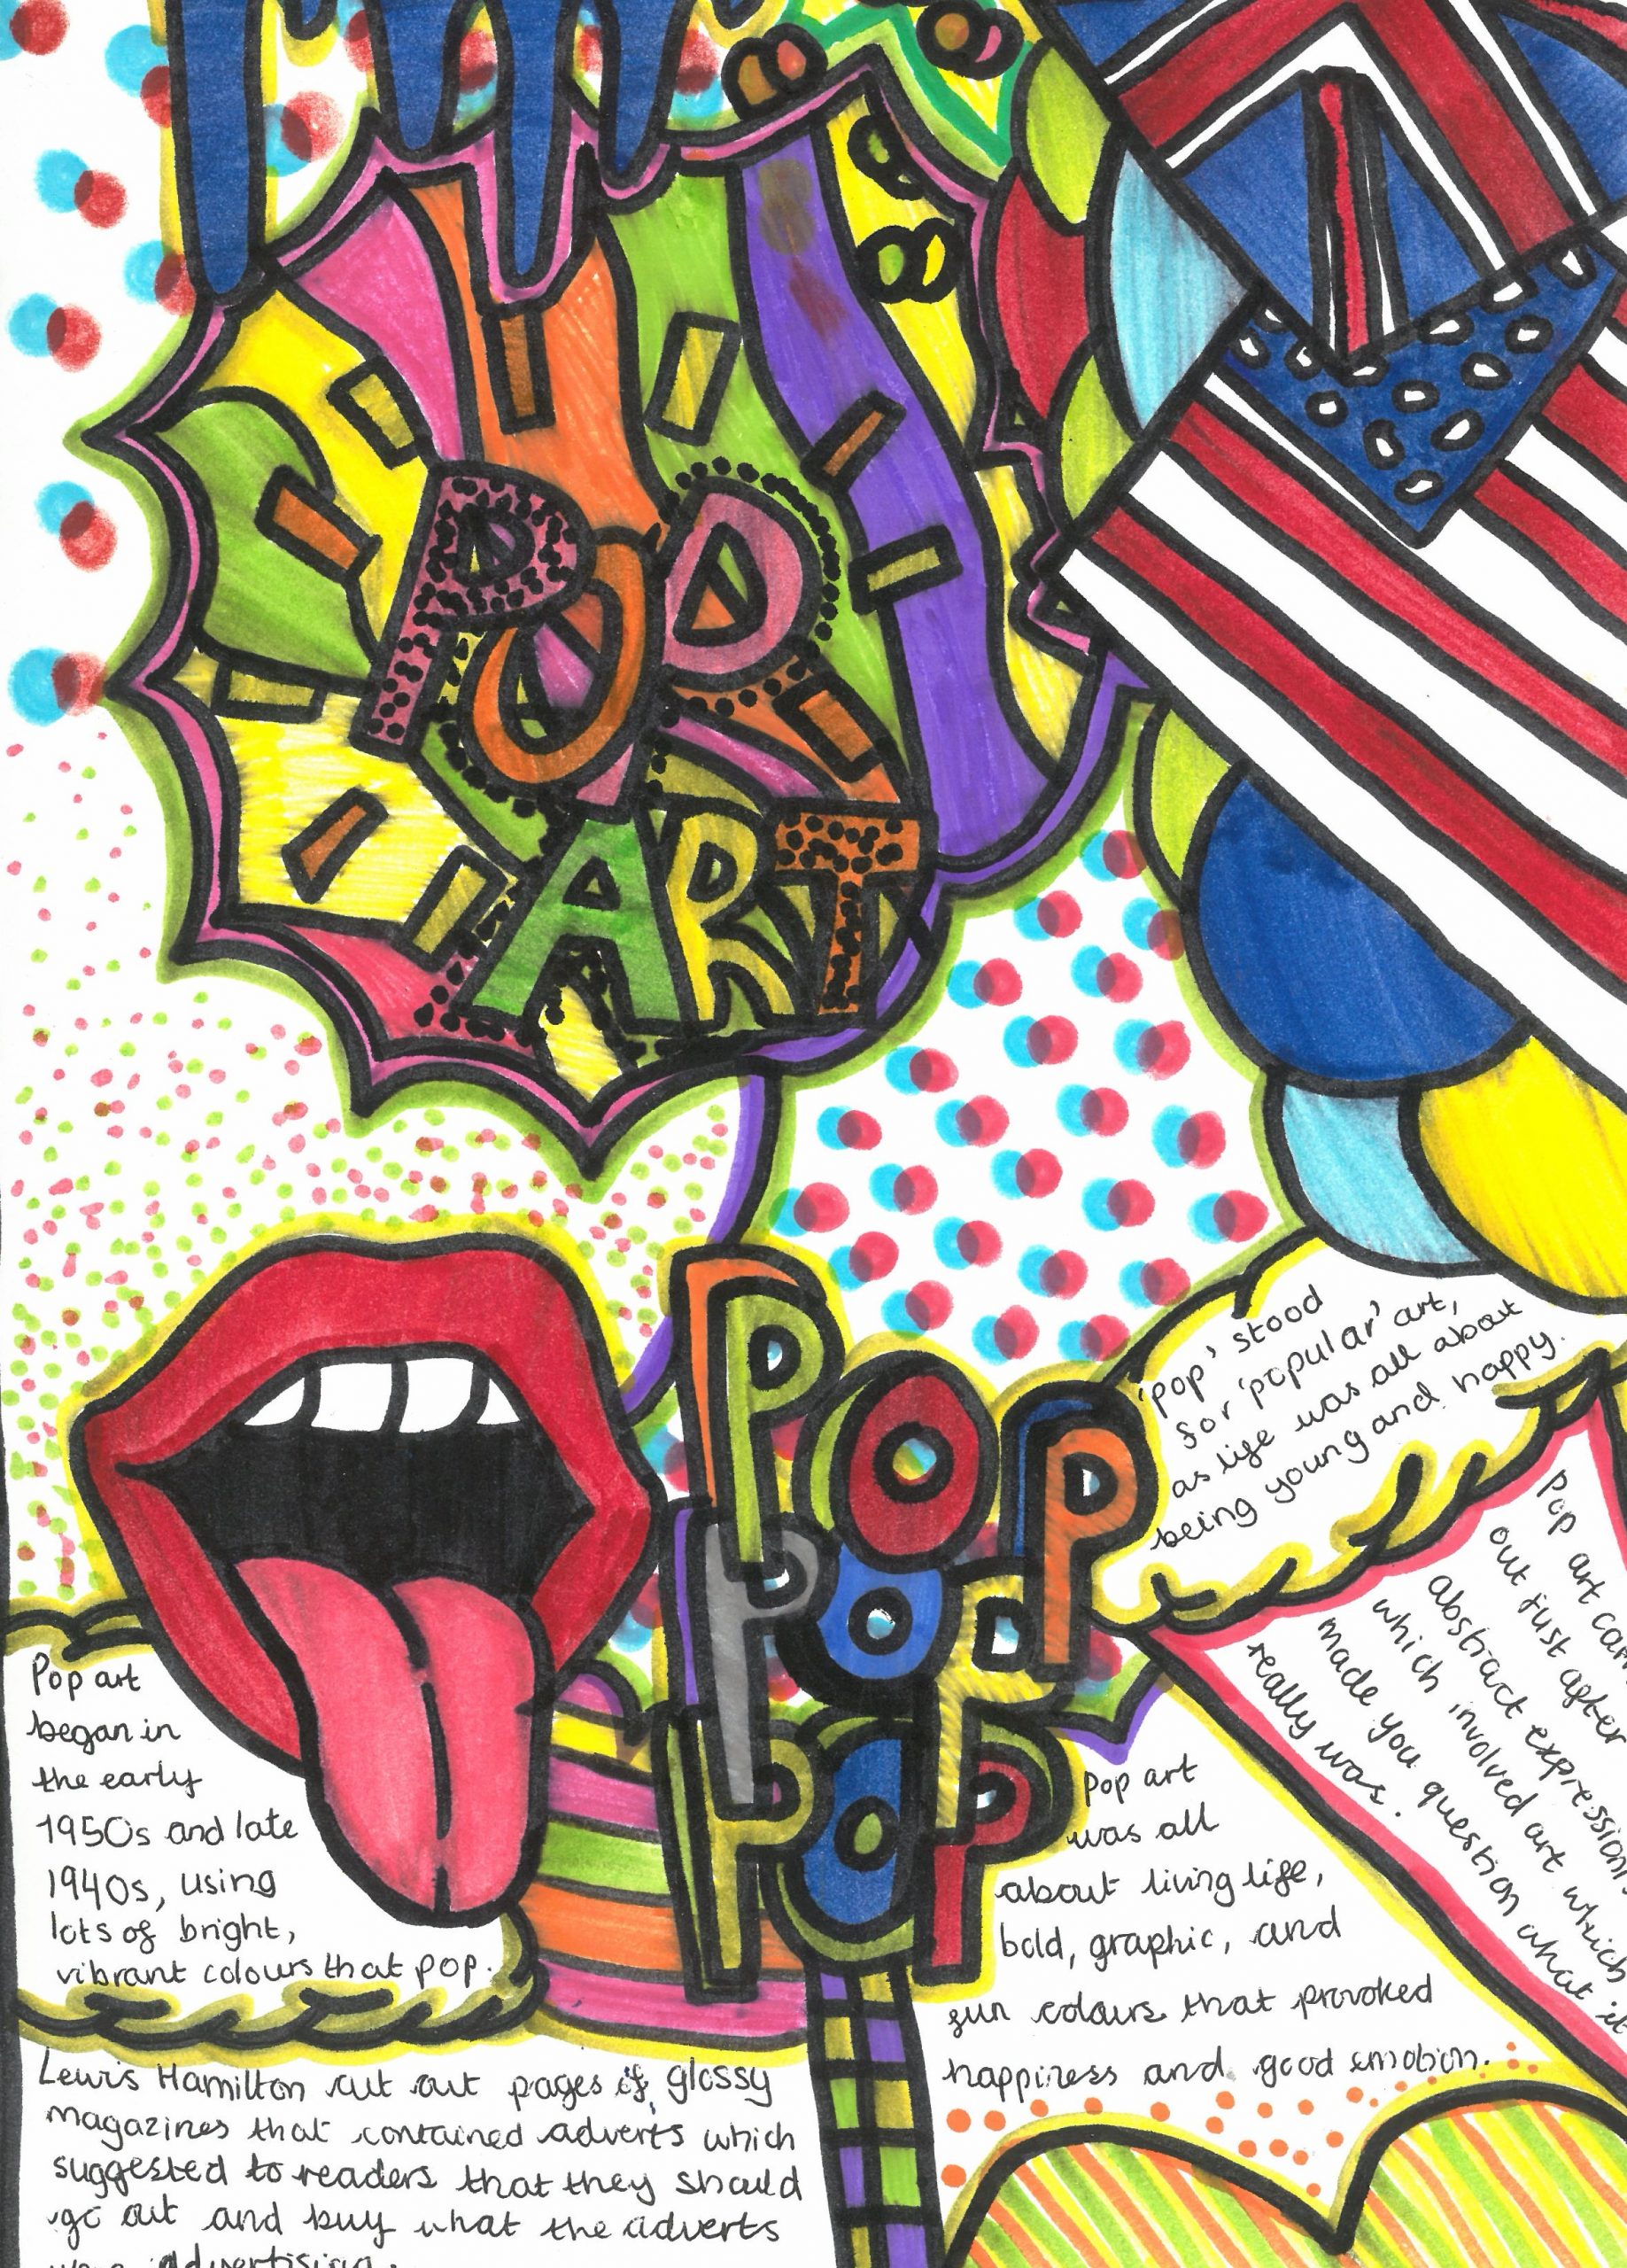 POP
ART
POP
POP
POP
'pop' stood
for 'popular' art,
as life was all about
being young and happy.
Pop art
out just after
abstract
which involved art which
made you question what it
really was.
Pop art
began in
the early
1950s and late
1940s, using
lots of bright,
vibrant colours that pop.
Pop art
was all
about living life,
bold, graphic, and
fun colours that provoked
happiness and good emotion.
Lewis Hamilton cut out pages of glossy
magazines that contained adverts which
suggested to readers that they should
go out and buy what the adverts
advertising.